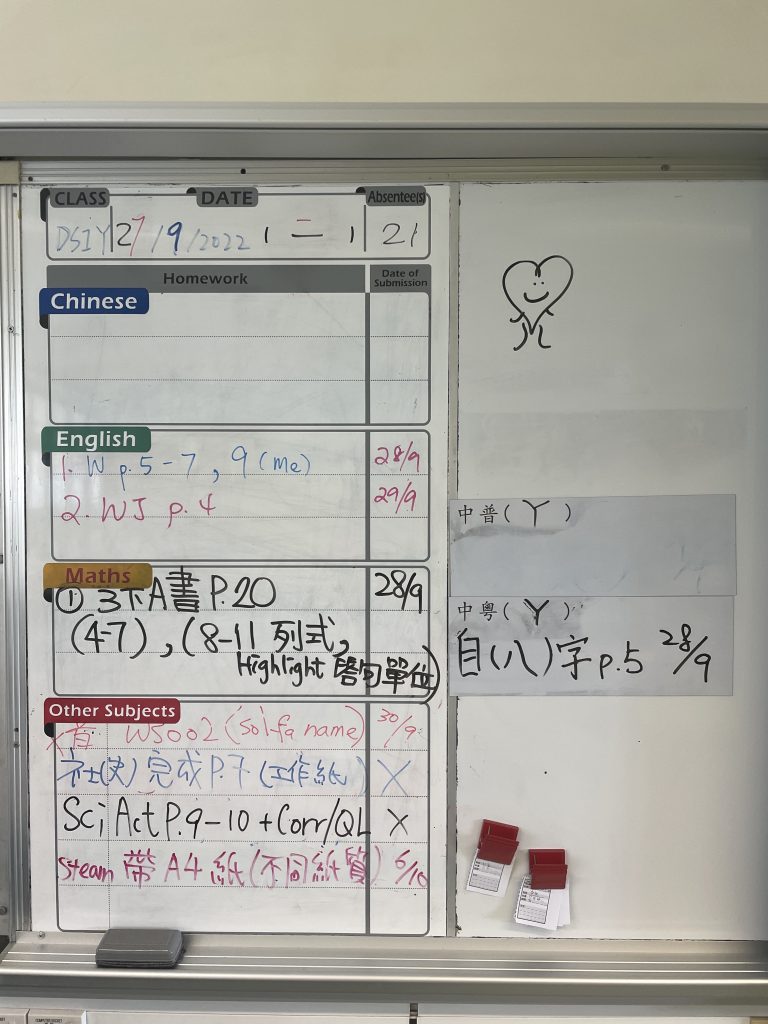 CLASS DATE Absentee(s)
DS1Y 27/9/2022 ( 二 ) 21
Homework Date of Submission
Chinese
English
1. W p.5-7, 9 (me) 28/9
2. WJ p.4 29/9
Maths
① 3下A書 P.20 28/9
(4-7), (8-11 列式,
Highlight 答句單位)
Other Subjects
音 WS002 (sol-fa name) 30/9
社(史) 完成P.7 (工作紙) X
Sci Act P.9-10 + Corr/QL X
Steam 帶 A4 紙 (不同紙質) 6/10
中普( Y )
中粵( Y )
自(八)字 p.5 28/9